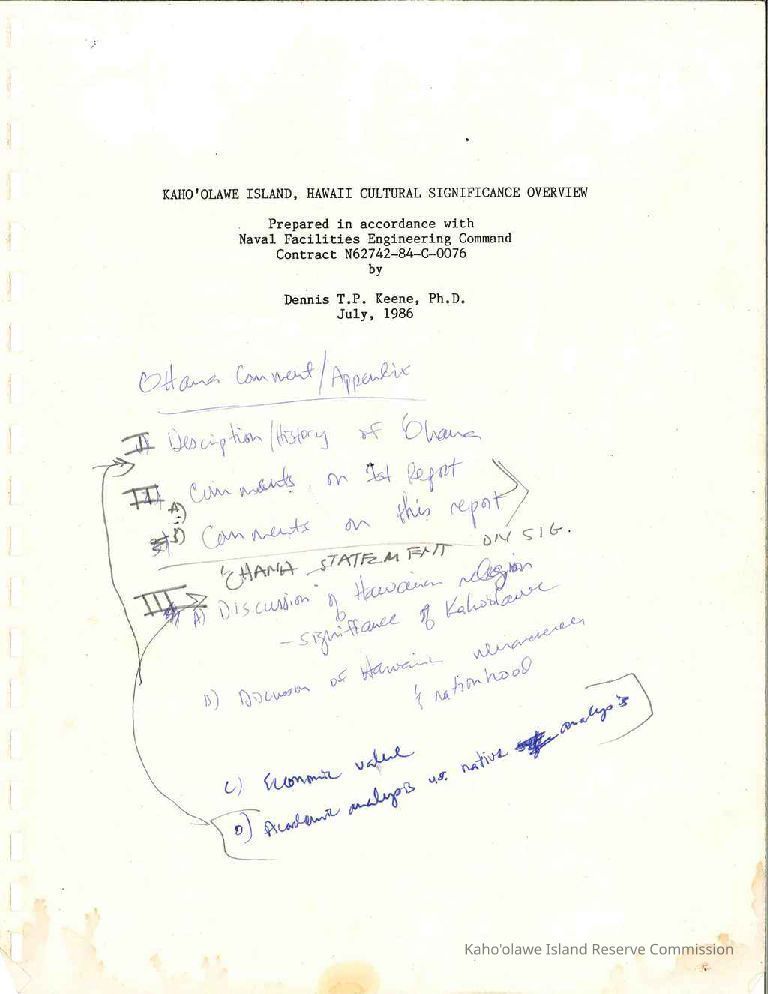 KAHO'OLAWE ISLAND, HAWAII CULTURAL SIGNIFICANCE OVERVIEW
Prepared in accordance with
Naval Facilities Engineering Command
Contract N62742-84-C-0076
by
Dennis T.P. Keene, Ph.D.
July, 1986
Ohana Comment/Appendix
I Description/History of 'Ohana
II Comments on 1st Report
Comments on this report
'OHANA STATEMENT ON SIG.
III A) Discussion of Hawaiian religion
- significance of Kaho'olawe
B) Discussion of Hawaiian
& nationhood
C) Economic value
D) Academic analysis vs. native analysis
Kaho'olawe Island Reserve Commission